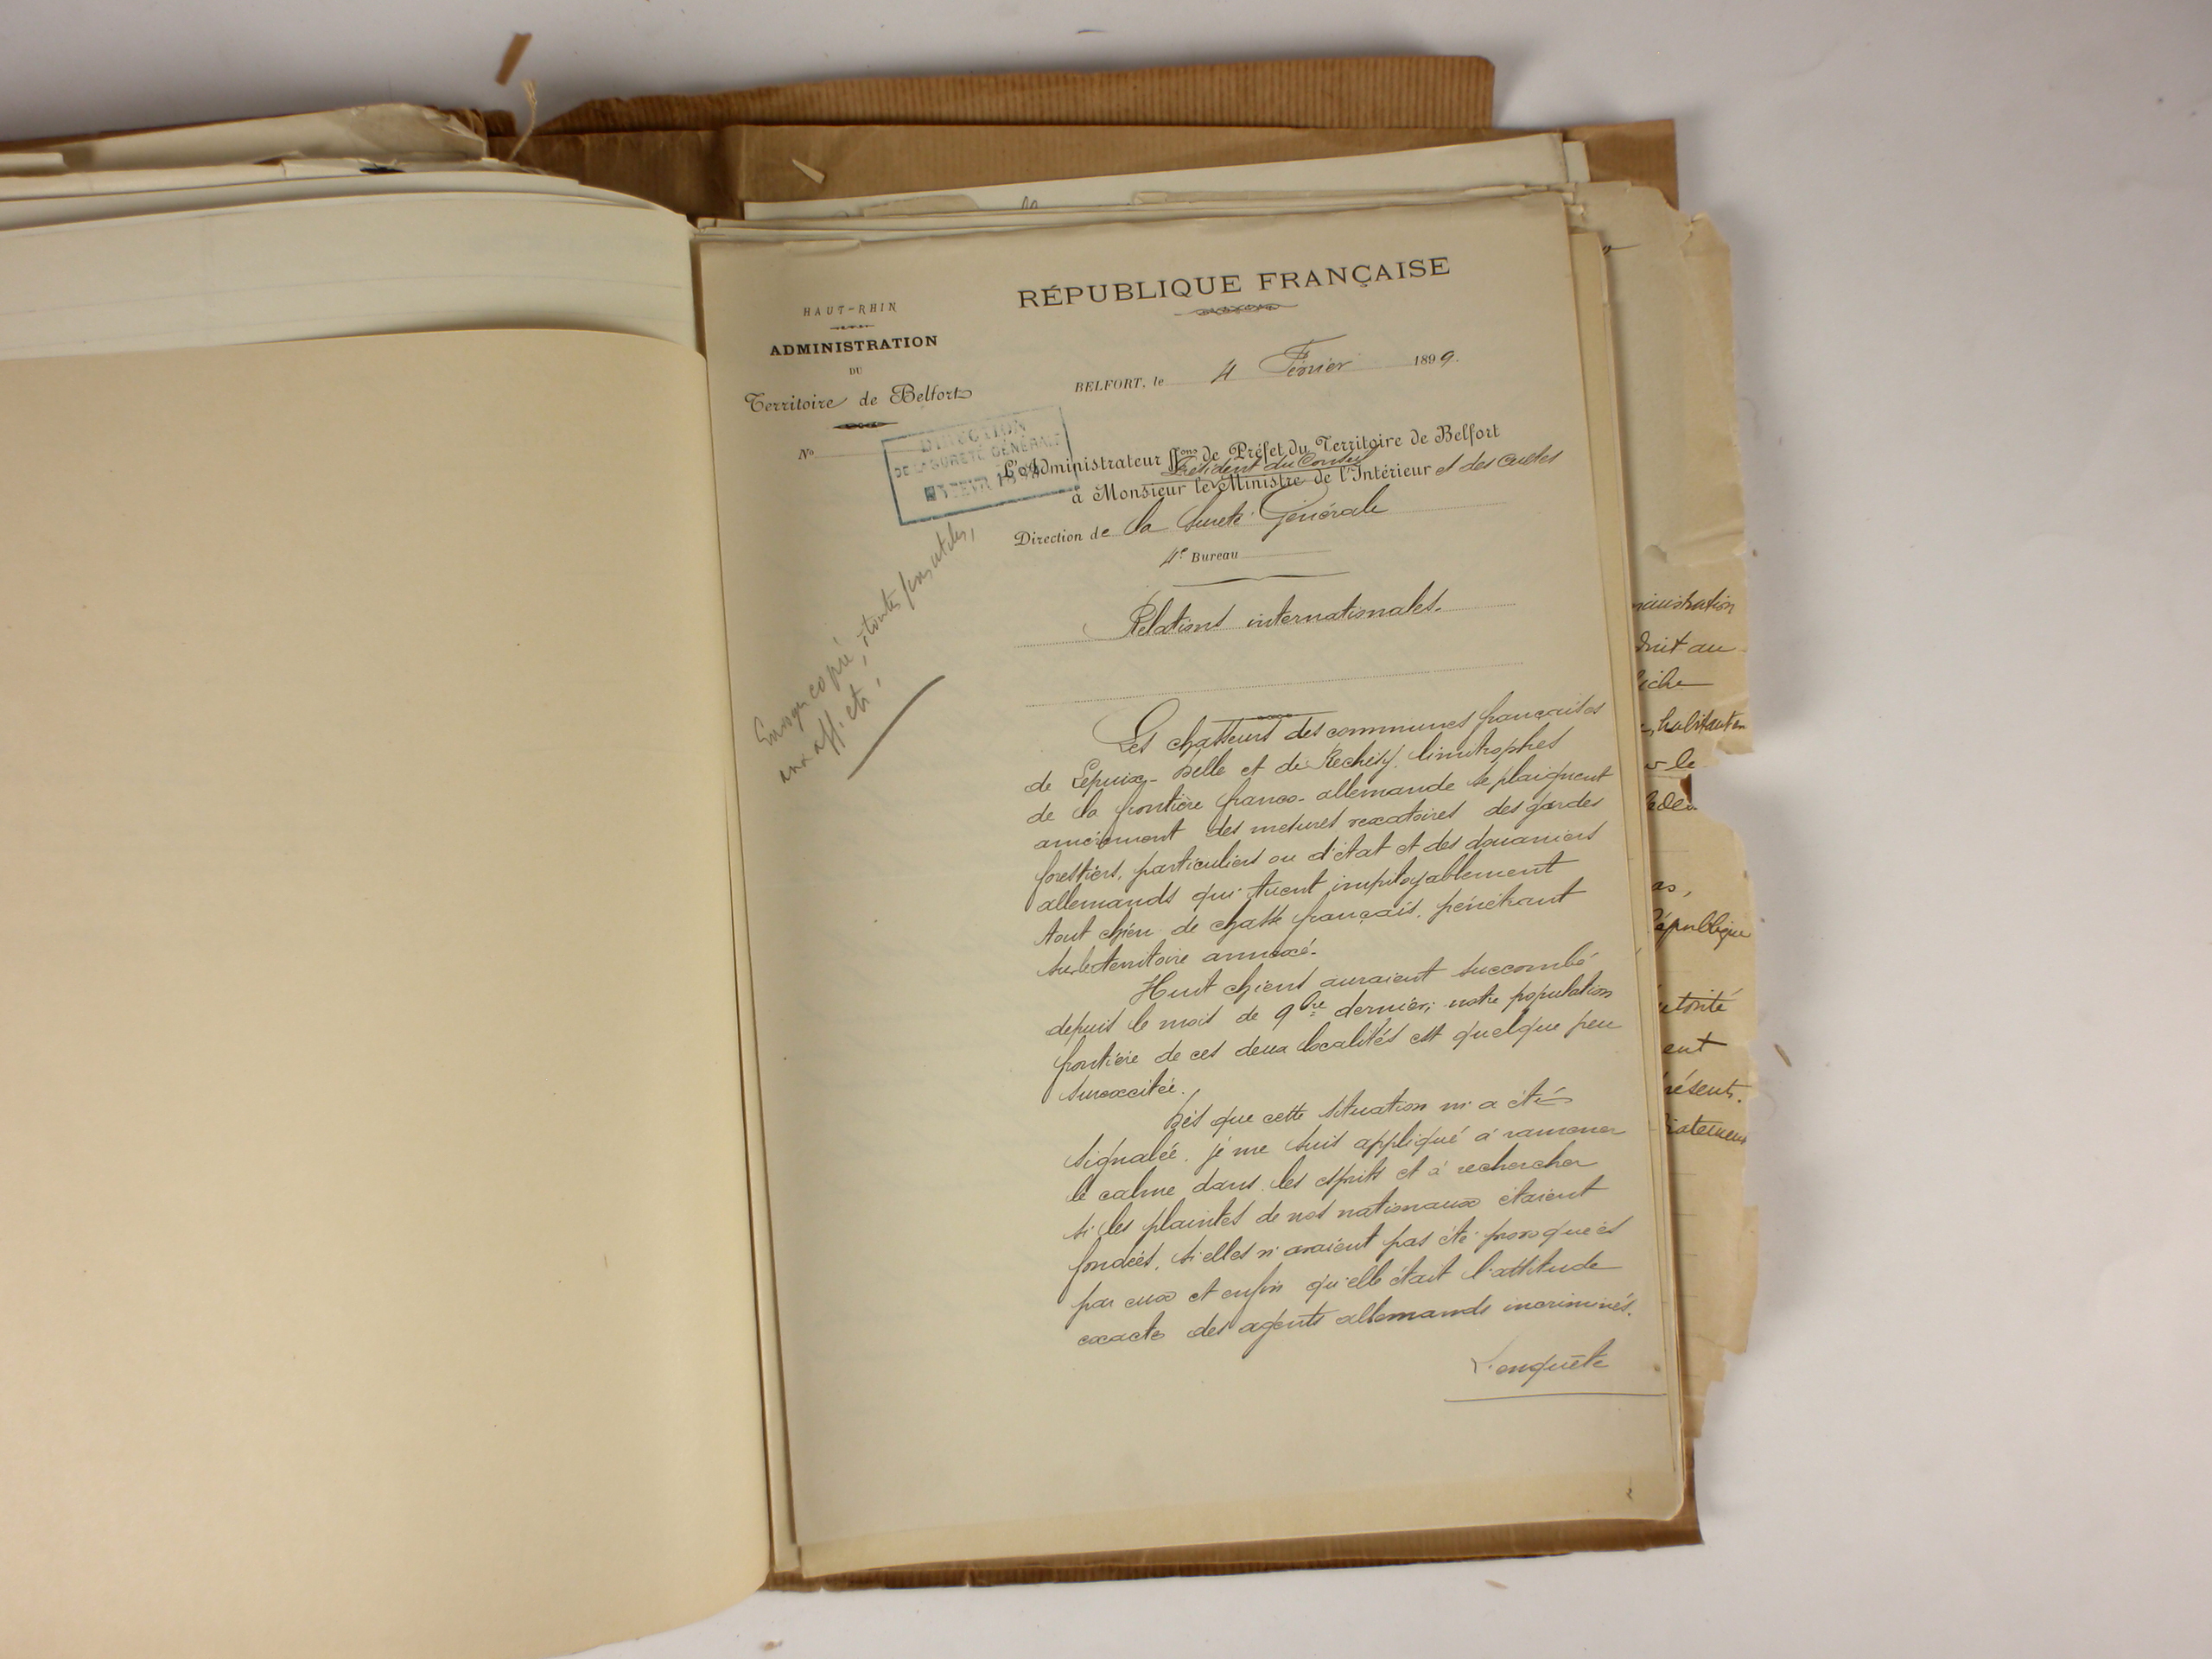 RÉPUBLIQUE FRANÇAISE
HAUT-RHIN
ADMINISTRATION
DU
Territoire de Belfort
BELFORT, le 4 Février 1899.
No
DIRECTION
DE LA SURETÉ GÉNÉRALE
FEVR
L'Administrateur ffons de Préfet du Territoire de Belfort
Président du Conseil
à Monsieur le Ministre de l'Intérieur et des Cultes
Direction de la Sureté Générale
4e Bureau
Relations internationales.
Envoyer copie, à toutes fins utiles,
aux aff. etr.
Les chasseurs des communes françaises
de Lepuix-Delle et de Rechésy, limitrophes
de la frontière franco-allemande se plaignent
amèrement des mesures vexatoires des gardes
forestiers, particuliers ou d'état et des douaniers
allemands qui tuent impitoyablement
tout chien de chasse français, pénétrant
sur le territoire annexé.
Huit chiens auraient succombé
depuis le mois de 9bre dernier; notre population
frontière de ces deux localités est quelque peu
surexcitée.
Dès que cette situation m'a été
signalée, je me suis appliqué à ramener
le calme dans les esprits et à rechercher
si les plaintes de nos nationaux étaient
fondées, si elles n'avaient pas été provoquées
par eux et enfin qu'elle était l'attitude
exacte des agents allemands incriminés.
L'enquête
ministration
droit au
iche
habitant en
le
as,
République
torité
ent
résent.